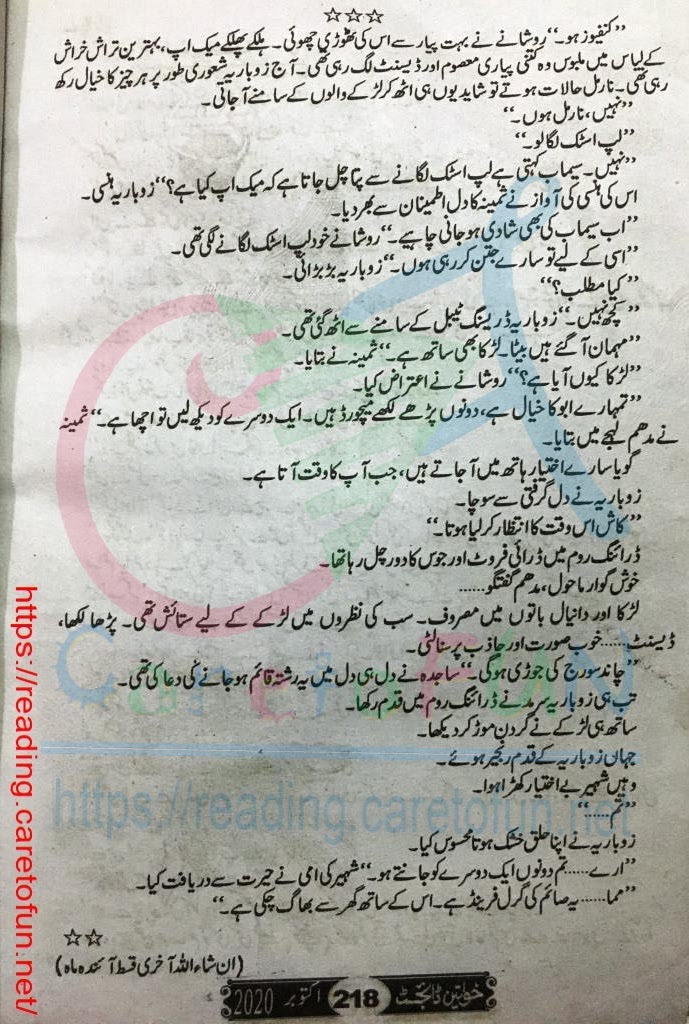 ☆☆☆
”کنفیوز ہو۔“ روشانے نے بہت پیار سے اس کی ٹھوڑی چھوئی۔ ہلکے پھلکے میک اپ، بہترین تراش خراش
کے لباس میں ملبوس وہ کتنی پیاری معصوم اور ڈیسنٹ لگ رہی تھی۔ آج زوباریہ شعوری طور پر ہر چیز کا خیال رکھ
رہی تھی۔ نارمل حالات ہوتے تو شاید یوں ہی اٹھ کر لڑکے والوں کے سامنے آ جاتی۔
”نہیں، نارمل ہوں۔“
”لپ اسٹک لگا لو۔“
”نہیں۔ سیماب کہتی ہے لپ اسٹک لگانے سے پتا چل جاتا ہے کہ میک اپ کیا ہے؟“ زوباریہ ہنسی۔
اس کی ہنسی کی آواز نے ثمینہ کا دل اطمینان سے بھر دیا۔
”اب سیماب کی بھی شادی ہو جانی چاہیے۔“ روشانے خود لپ اسٹک لگانے لگی تھی۔
”اسی کے لیے تو سارے جتن کر رہی ہوں۔“ زوباریہ بڑبڑائی۔
”کیا مطلب؟“
”کچھ نہیں۔“ زوباریہ ڈریسنگ ٹیبل کے سامنے سے اٹھ گئی تھی۔
”مہمان آ گئے ہیں بیٹا۔ لڑکا بھی ساتھ ہے۔“ ثمینہ نے بتایا۔
”لڑکا کیوں آیا ہے؟“ روشانے نے اعتراض کیا۔
”تمہارے ابو کا خیال ہے، دونوں پڑھے لکھے میچورڈ ہیں۔ ایک دوسرے کو دیکھ لیں تو اچھا ہے۔“ ثمینہ
نے مدھم لہجے میں بتایا۔
گویا سارے اختیار ہاتھ میں آ جاتے ہیں، جب آپ کا وقت آتا ہے۔
زوباریہ نے دل گرفتی سے سوچا۔
”کاش اس وقت کا انتظار کر لیا ہوتا۔“
ڈرائنگ روم میں ڈرائی فروٹ اور جوس کا دور چل رہا تھا۔
خوش گوار ماحول، مدھم گفتگو......
لڑکا اور دانیال باتوں میں مصروف۔ سب کی نظروں میں لڑکے کے لیے ستائش تھی۔ پڑھا لکھا،
ڈیسنٹ...... خوب صورت اور جاذب پرسنالٹی۔
”چاند سورج کی جوڑی ہو گی۔“ ساجدہ نے دل ہی دل میں یہ رشتہ قائم ہو جانے کی دعا کی تھی۔
تب ہی زوباریہ سرمد نے ڈرائنگ روم میں قدم رکھا۔
ساتھ ہی لڑکے نے گردن موڑ کر دیکھا۔
جہاں زوباریہ کے قدم زنجیر ہوئے۔
وہیں شہیر بے اختیار کھڑا ہوا۔
”تم......“
زوباریہ نے اپنا حلق خشک ہوتا محسوس کیا۔
”ارے...... تم دونوں ایک دوسرے کو جانتے ہو۔“ شہیر کی امی نے حیرت سے دریافت کیا۔
”مما...... یہ صائم کی گرل فرینڈ ہے۔ اس کے ساتھ گھر سے بھاگ چکی ہے۔“
☆☆
(ان شاء اللہ آخری قسط آئندہ ماہ)
خواتین ڈائجسٹ 218 اکتوبر 2020
https://reading.caretofun.net/
https://reading.caretofun.net